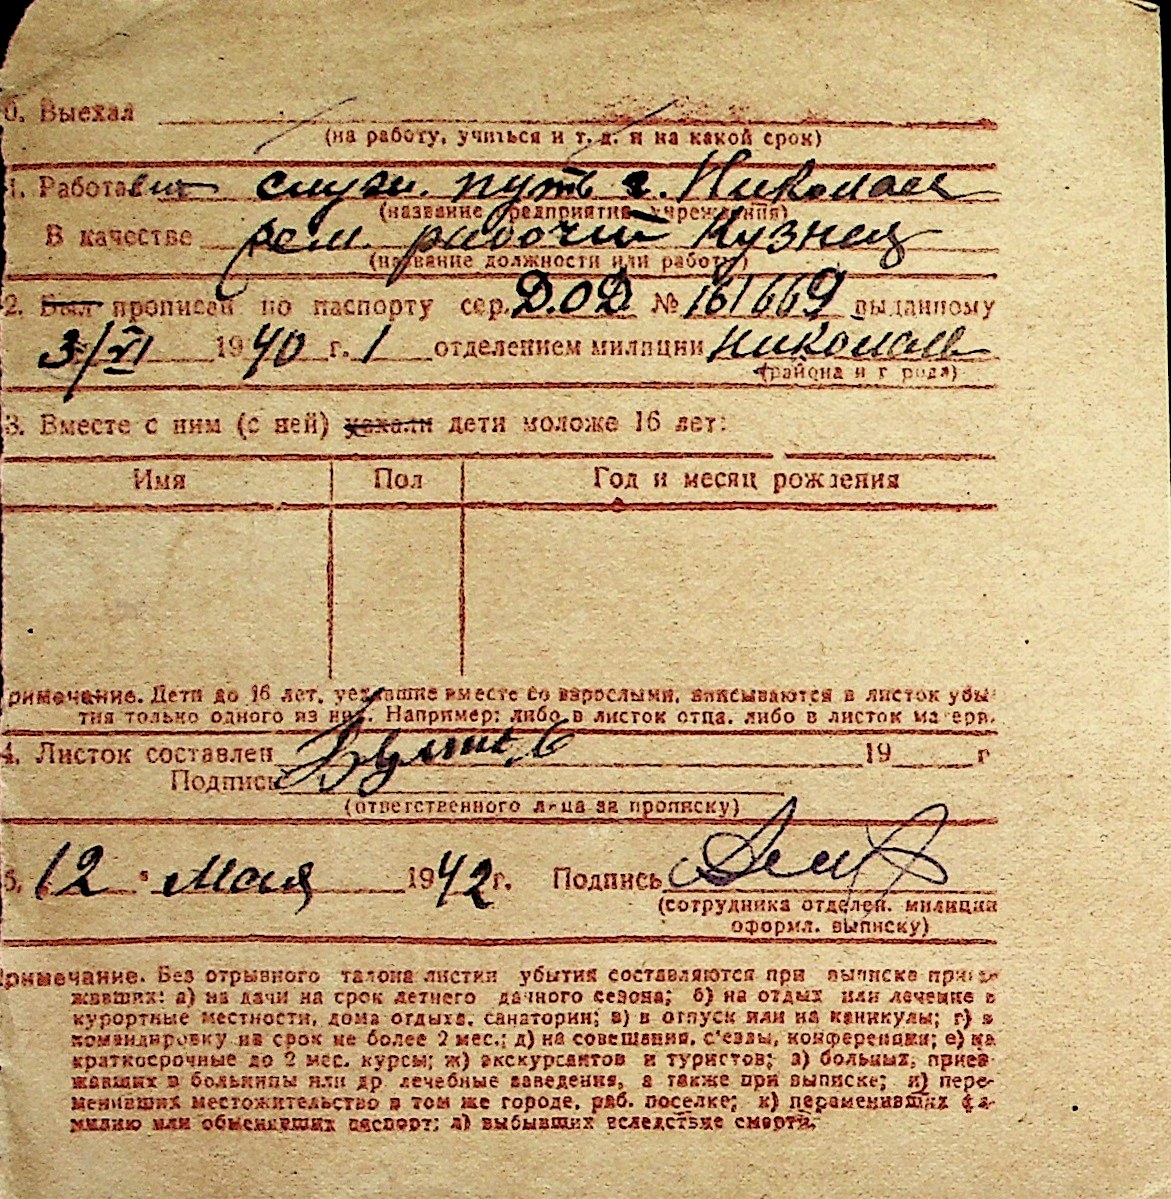 0. Выехал
(на работу, учиться и т. д. и на какой срок)
1. Работает служ. путь г. Николаев
(название предприятия учреждения)
В качестве рем. рабочий Кузнец
(название должности или работы)
2. Был прописан по паспорту сер. Д.О.Д. № 161669 выданному
3/VI 1940 г. 1 отделением милиции Николаев
(района и города)
3. Вместе с ним (с ней) уехали дети моложе 16 лет:
Имя Пол Год и месяц рождения
римечание. Дети до 16 лет, уехавшие вместе со взрослыми, вписываются в листок убы-
тия только одного из них. Например: либо в листок отца, либо в листок матери.
4. Листок составлен 19 г
Подпись
(ответственного лица за прописку)
5. 12 " Мая 1942 г. Подпись
(сотрудника отделен. милиции
оформл. выписку)
Примечание. Без отрывного талона листки убытия составляются при выписке приез-
жавших: а) на дачи на срок летнего дачного сезона; б) на отдых или лечение в
курортные местности, дома отдыха, санатории; в) в отпуск или на каникулы; г) в
командировку на срок не более 2 мес.; д) на совещания, с'езды, конференции; е) на
краткосрочные до 2 мес. курсы; ж) экскурсантов и туристов; з) больных, приез-
жавших в больницы или др лечебные заведения, а также при выписке; и) пере-
менивших местожительство в том же городе, раб. поселке; к) переменивших фа-
милию или обменявших паспорт; л) выбывших вследствие смерти.